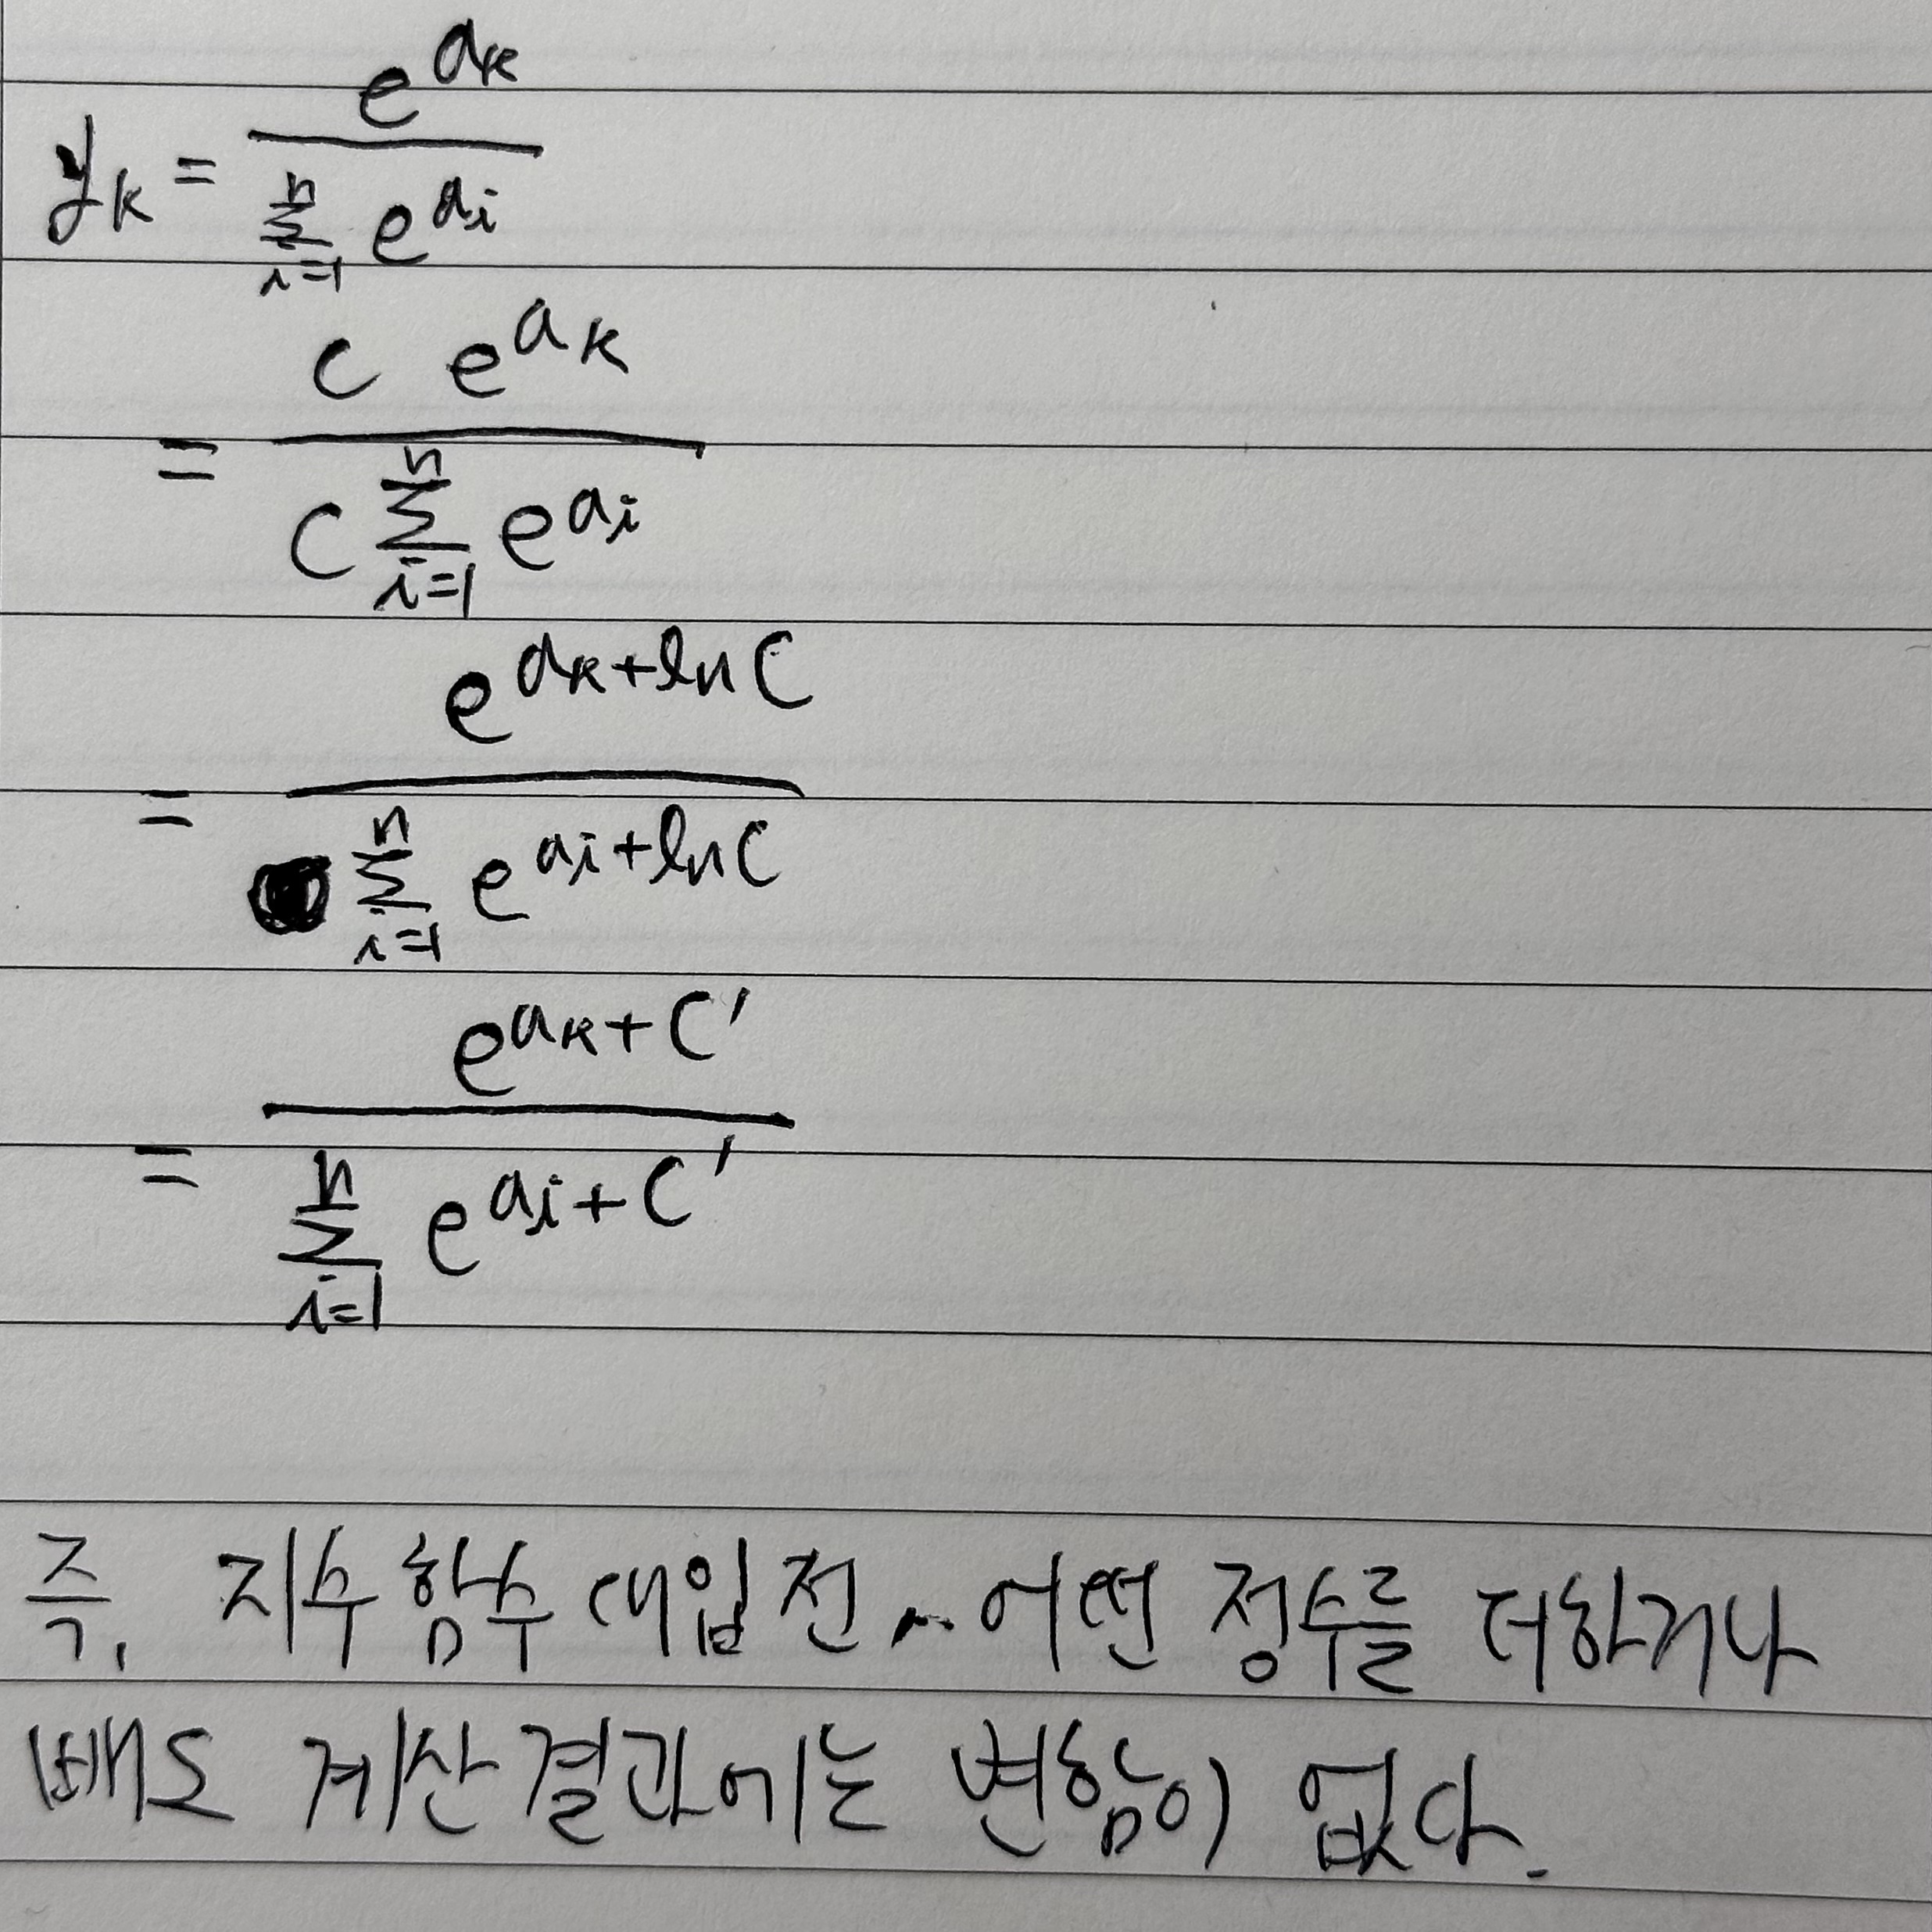 y_k = \frac{e^{a_k}}{\sum_{i=1}^{n} e^{a_i}}
= \frac{C e^{a_k}}{C \sum_{i=1}^{n} e^{a_i}}
= \frac{e^{a_k + \ln C}}{\sum_{i=1}^{n} e^{a_i + \ln C}}
= \frac{e^{a_k + C'}}{\sum_{i=1}^{n} e^{a_i + C'}}
즉, 지수함수 대입 전 어떤 정수를 더하거나
빼도 계산결과에는 변함이 없다.